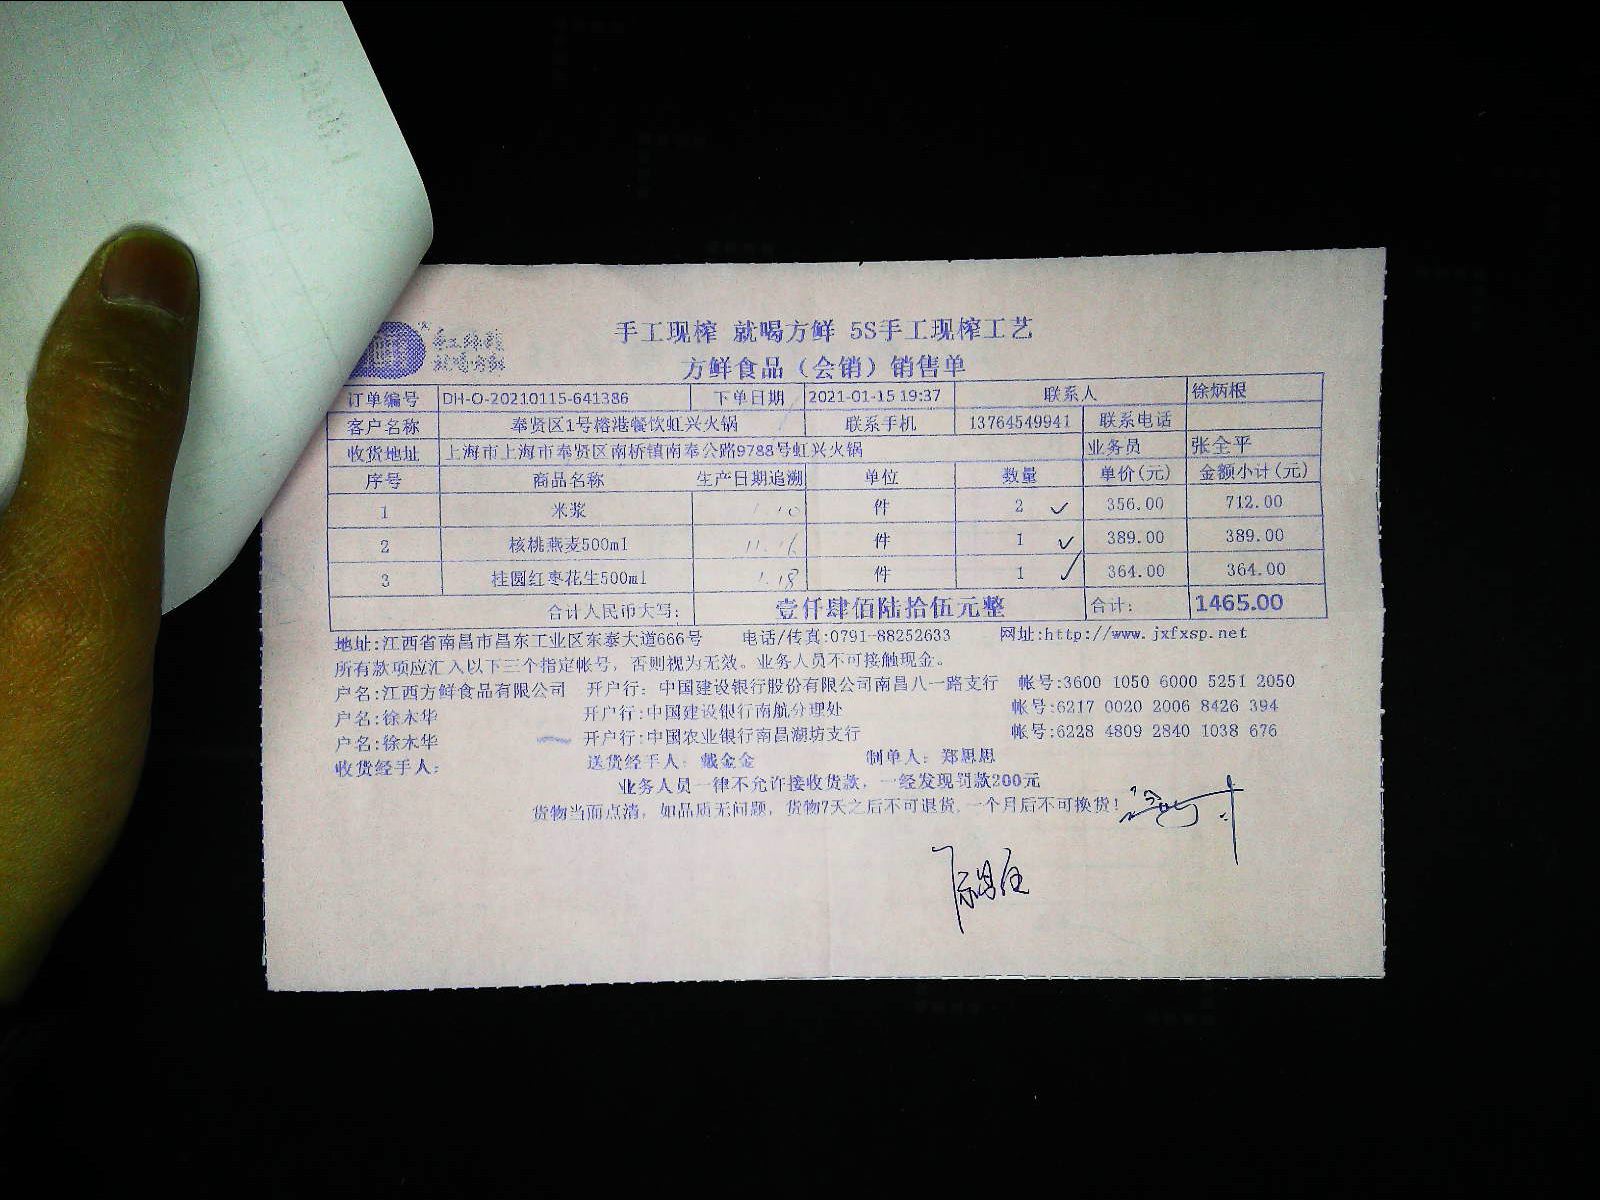 手工现榨 就喝方鲜 5S手工现榨工艺
方鲜食品（会销）销售单
订单编号 DH-O-20210115-641386 下单日期 2021-01-15 19:37 联系人 徐炳根
客户名称 奉贤区1号榕港餐饮虹兴火锅 联系手机 13764549941 联系电话
收货地址 上海市上海市奉贤区南桥镇南奉公路9788号虹兴火锅 业务员 张全平
序号 商品名称 生产日期追溯 单位 数量 单价(元) 金额小计(元)
1 米浆 1.10 件 2 356.00 712.00
2 核桃燕麦500ml 11.16 件 1 389.00 389.00
3 桂圆红枣花生500ml 1.18 件 1 364.00 364.00
合计人民币大写: 壹仟肆佰陆拾伍元整 合计: 1465.00
地址:江西省南昌市昌东工业区东泰大道666号 电话/传真:0791-88252633 网址:http://www.jxfxsp.net
所有款项应汇入以下三个指定帐号，否则视为无效。业务人员不可接触现金。
户名:江西方鲜食品有限公司 开户行: 中国建设银行股份有限公司南昌八一路支行 帐号:3600 1050 6000 5251 2050
户名:徐木华 开户行:中国建设银行南航分理处 帐号:6217 0020 2006 8426 394
户名:徐木华 开户行:中国农业银行南昌湖坊支行 帐号:6228 4809 2840 1038 676
收货经手人: 送货经手人: 戴金金 制单人: 郑思思
业务人员一律不允许接收货款，一经发现罚款200元
货物当面点清，如品质无问题，货物7天之后不可退货,一个月后不可换货!